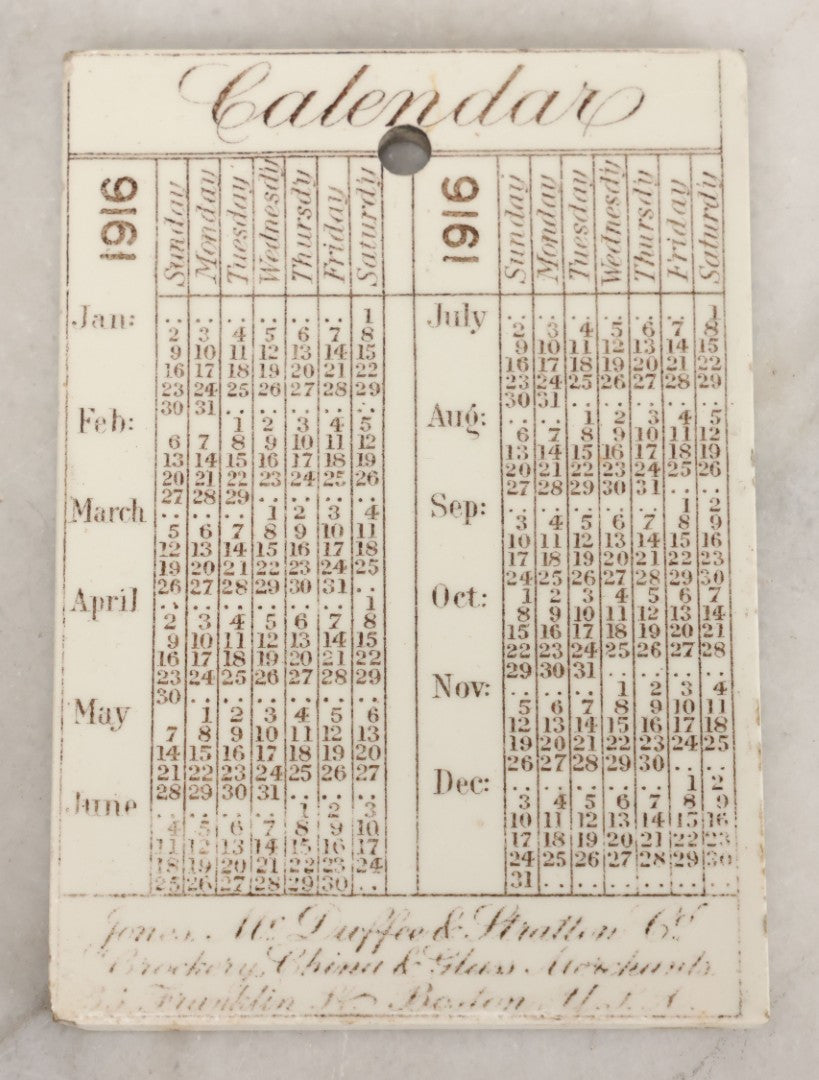 Calendar
1916 Sunday Monday Tuesday Wednesdy Thursdy Friday Saturdy
Jan: .. .. .. .. .. .. 1
2 3 4 5 6 7 8
9 10 11 12 13 14 15
16 17 18 19 20 21 22
23 24 25 26 27 28 29
30 31 .. .. .. .. ..
Feb: .. .. 1 2 3 4 5
6 7 8 9 10 11 12
13 14 15 16 17 18 19
20 21 22 23 24 25 26
27 28 29 .. .. .. ..
March .. .. .. 1 2 3 4
5 6 7 8 9 10 11
12 13 14 15 16 17 18
19 20 21 22 23 24 25
26 27 28 29 30 31 ..
April .. .. .. .. .. .. 1
2 3 4 5 6 7 8
9 10 11 12 13 14 15
16 17 18 19 20 21 22
23 24 25 26 27 28 29
30 .. .. .. .. .. ..
May 1 2 3 4 5 6
7 8 9 10 11 12 13
14 15 16 17 18 19 20
21 22 23 24 25 26 27
28 29 30 31 .. .. ..
June .. .. .. .. 1 2 3
4 5 6 7 8 9 10
11 12 13 14 15 16 17
18 19 20 21 22 23 24
25 26 27 28 29 30 ..
1916 Sunday Monday Tuesday Wednesdy Thursdy Friday Saturdy
July .. .. .. .. .. .. 1
2 3 4 5 6 7 8
9 10 11 12 13 14 15
16 17 18 19 20 21 22
23 24 25 26 27 28 29
30 31 .. .. .. .. ..
Aug: .. .. 1 2 3 4 5
6 7 8 9 10 11 12
13 14 15 16 17 18 19
20 21 22 23 24 25 26
27 28 29 30 31 .. ..
Sep: .. .. .. .. .. 1 2
3 4 5 6 7 8 9
10 11 12 13 14 15 16
17 18 19 20 21 22 23
24 25 26 27 28 29 30
Oct: 1 2 3 4 5 6 7
8 9 10 11 12 13 14
15 16 17 18 19 20 21
22 23 24 25 26 27 28
29 30 31 .. .. .. ..
Nov: .. .. .. 1 2 3 4
5 6 7 8 9 10 11
12 13 14 15 16 17 18
19 20 21 22 23 24 25
26 27 28 29 30 .. ..
Dec: .. .. .. .. .. 1 2
3 4 5 6 7 8 9
10 11 12 13 14 15 16
17 18 19 20 21 22 23
24 25 26 27 28 29 30
31 .. .. .. .. .. ..
Jones, Mc Duffee & Stratton Co.
Crockery, China & Glass Merchants
Franklin St. Boston U.S.A.